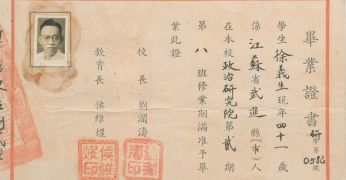 畢業證書
研字第0586號
學生徐義生現年四十一歲
係江蘇省武進縣(市)人
在本校政治研究院第貳期
第八班修業期滿准予畢
業此證
校長劉瀾濤
教育長侯維煜